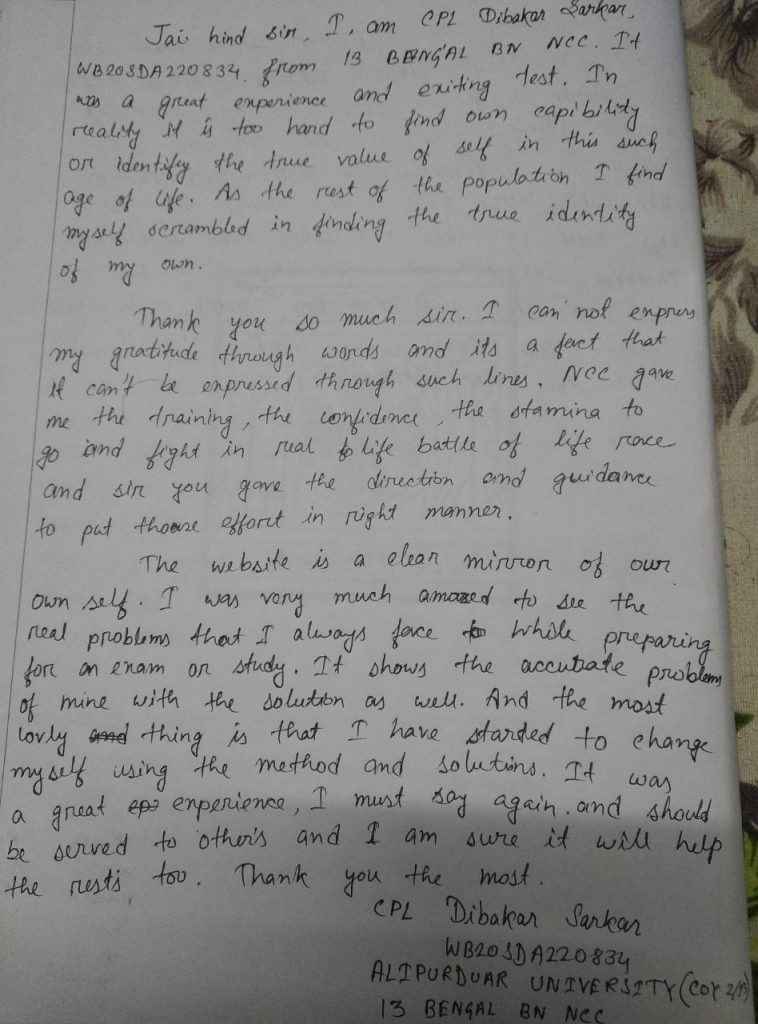 Jai hind sir, I, am CPL Dibakar Sarkar,
WB20SDA220834, from 13 BENGAL BN NCC. It
was a great experience and exiting test. In
reality it is too hard to find own capibility
or identify the true value of self in this such
age of life. As the rest of the population I find
myself scrambled in finding the true identity
of my own.
Thank you so much sir. I can not express
my gratitude through words and its a fact that
it can't be expressed through such lines. NCC gave
me the training, the confidence, the stamina to
go and fight in real life battle of life race
and sir you gave the direction and guidance
to put effort in right manner.
The website is a clear mirror of our
own self. I was very much amazed to see the
real problems that I always face while preparing
for an exam or study. It shows the accutrate problems
of mine with the solution as well. And the most
lovly thing is that I have started to change
myself using the method and solutins. It was
a great experience, I must say again. and should
be served to other's and I am sure it will help
the rests too. Thank you the most.
CPL Dibakar Sarkar
WB20SDA220834
ALIPURDUAR UNIVERSITY (COY
13 BENGAL BN NCC